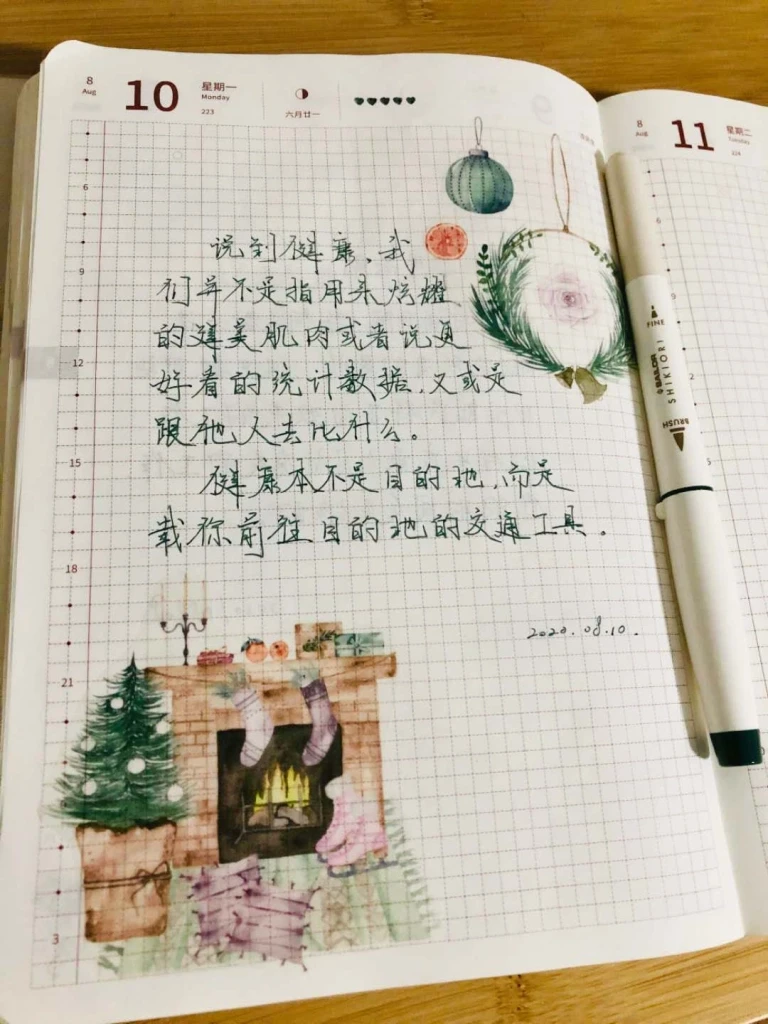 8
Aug
10
星期一
Monday
223
六月廿一
6
9
12
15
18
21
3
说到健康，我
们并不是指用来炫耀
的健美肌肉或者说更
好看的统计数据，又或是
跟他人去比什么。
健康本不是目的地，而是
载你前往目的地的交通工具。
2020.08.10.
8
Aug
11
星期二
Tuesday
224
6
9
FINE
SAILOR
SHIKIORI
BRUSH